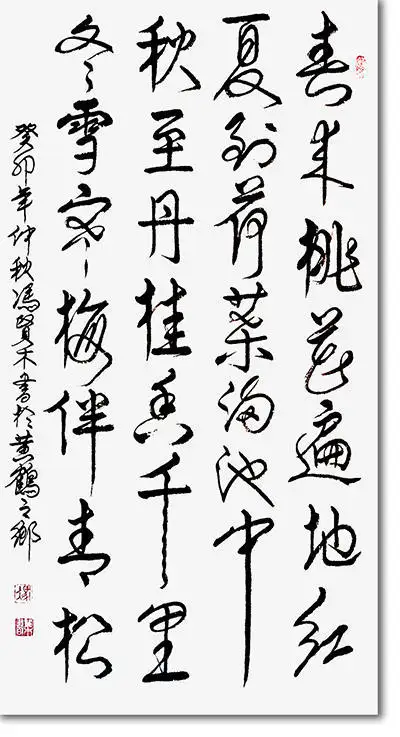 春来桃花遍地红
夏到荷葉满池中
秋至丹桂香千里
冬雪寒梅伴青松
癸卯年仲秋馮賢禾書於黄鶴之鄉